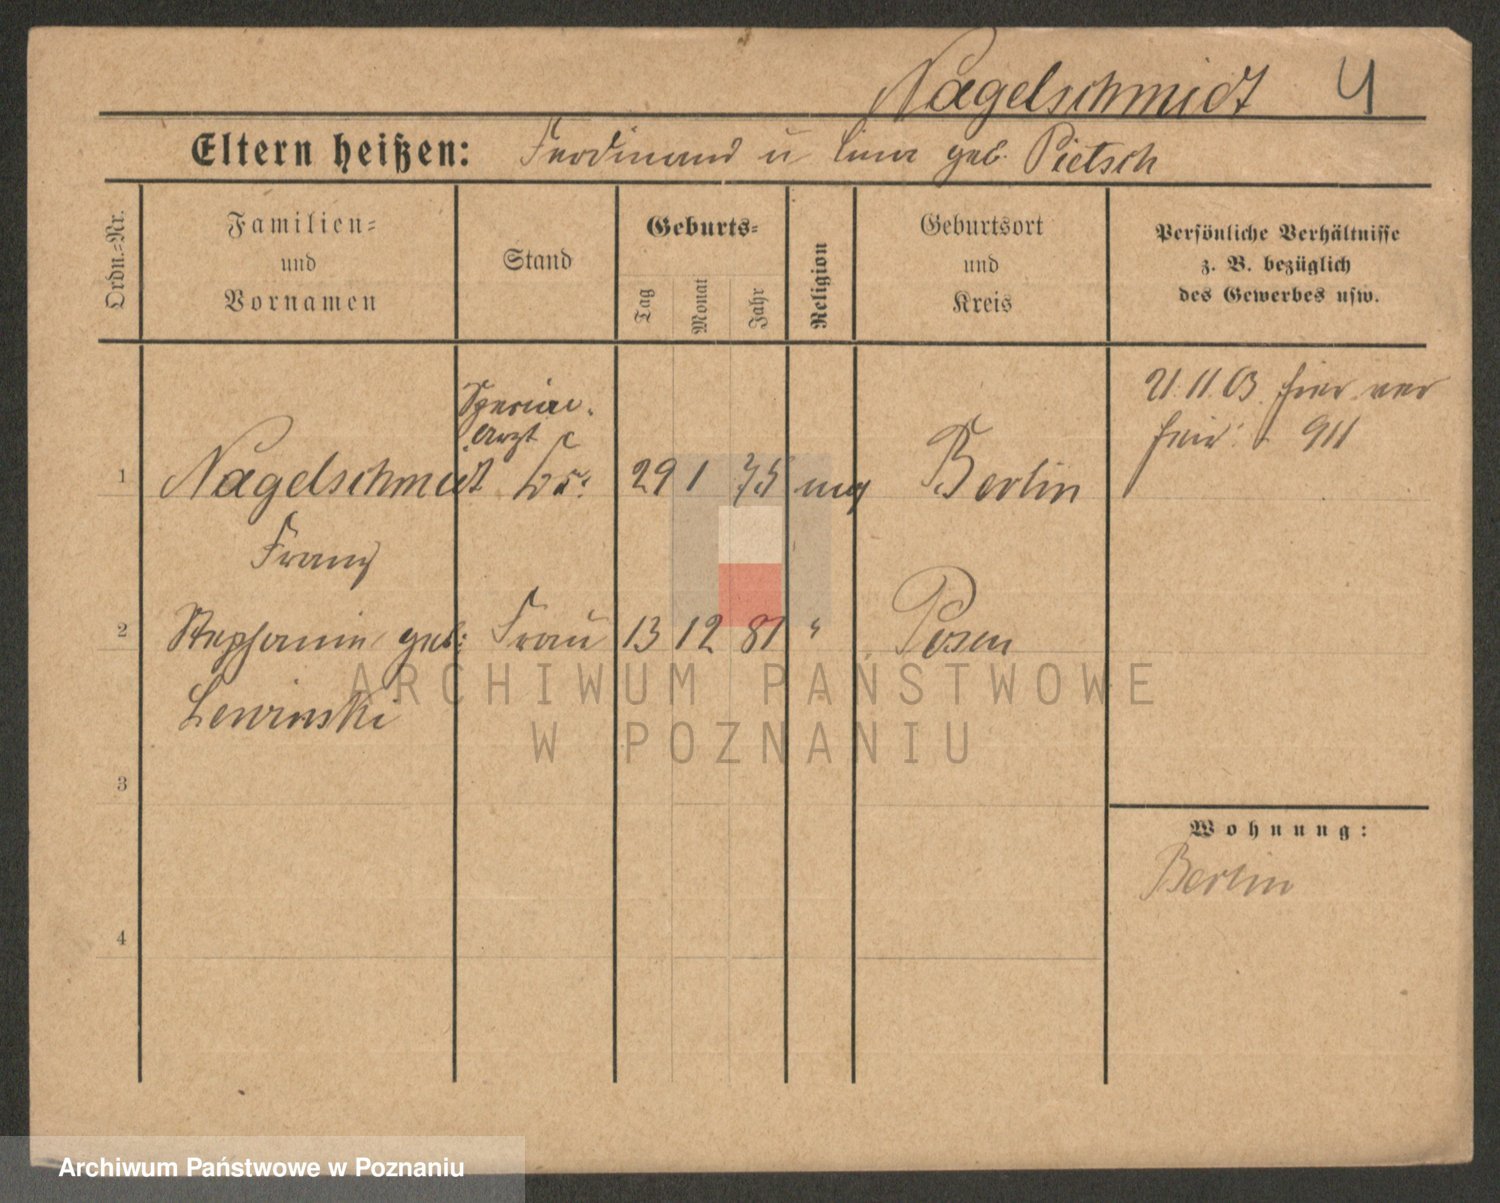 Nagelschmidt 4
Eltern heißen: Ferdinand u Lina geb. Pietsch
Ordn.-Nr.
Familien-
und
Vornamen
Stand
Geburts-
Tag
Monat
Jahr
Religion
Geburtsort
und
Kreis
Persönliche Verhältnisse
z. B. bezüglich
des Gewerbes usw.
21.11.03. hier ver
heir. 911
Spezial-
Arzt
1 Nagelschmidt Dr. 29 1 75 Berlin
Franz
2 Stephanie geb. Frau 13 12 81 " Posen
Lewinski
3
4
Wohnung:
Berlin
ARCHIWUM PAŃSTWOWE
W POZNANIU
Archiwum Państwowe w Poznaniu